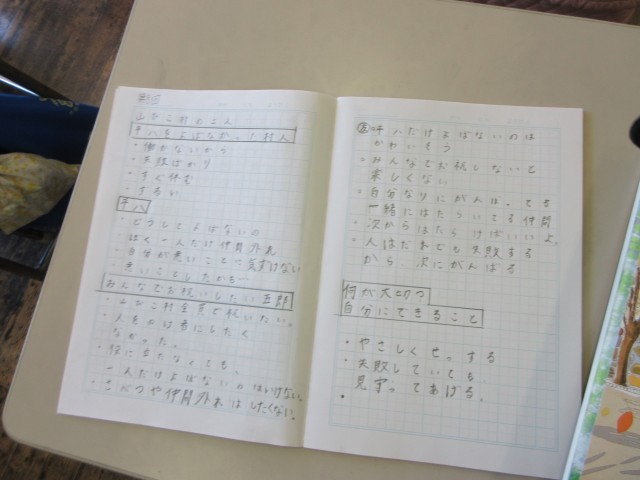 山びこ村の二人
平八をよばなかった村人
・働かないかつ
・失敗ばかり
・すぐ休む
・ずるい
平八
・どうしてよばないの
ぼく一人だけ仲間外れ
・自分が悪いことに気付けない
・悪いことしたかも…
みんなでお祝いしたい五郎
・山びこ村全員で祝いたい。
・人をのけ者にしたく
なかった。
・役に立たなくても、
一人だけよばないのはいけない。
・さべつや仲間外れはしたくない。
平八だけよばないのは
かわいそう
・みんなでお祝しないと
楽しくない
・自分なりにがんばってる
一緒にはたらいてる仲間
・次からはたらけばいいよ。
・人はだれでも失敗する
から 次にがんばる
何が大切?
自分にできること
・やさしくせっする
・失敗していても
見守ってあげる。